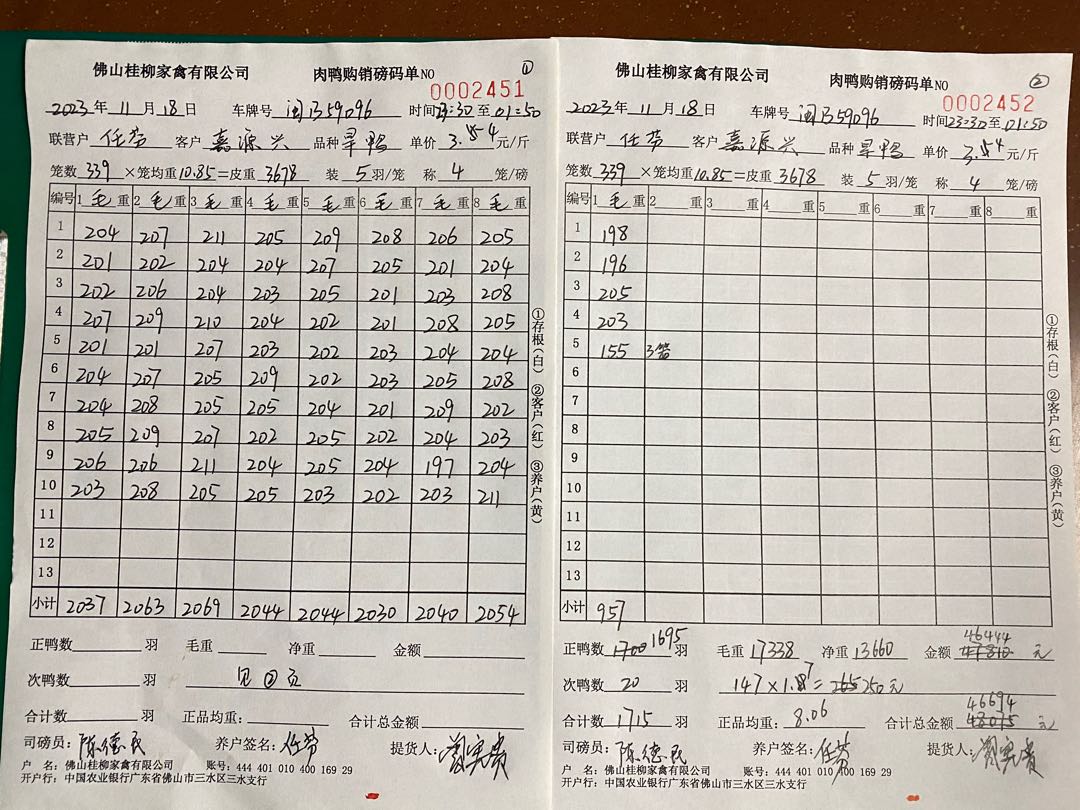 佛山桂柳家禽有限公司 肉鸭购销磅码单 NO 0002451 ①
2023年11月18日 车牌号 闽B59096 时间23:30至01:50
联营户 任芬 客户 嘉源兴 品种 旱鸭 单价 3.54 元/斤
笼数 339 ×笼均重 10.85 =皮重 3678 装 5 羽/笼 称 4 笼/磅
编号 1 毛 重 2 毛 重 3 毛 重 4 毛 重 5 毛 重 6 毛 重 7 毛 重 8 毛 重
1 204 207 211 205 209 208 206 205
2 201 202 204 204 207 205 201 204
3 202 206 204 203 205 201 203 208
4 207 209 210 204 202 201 208 205
5 201 201 207 203 202 203 204 204
6 204 207 205 209 202 203 205 208
7 204 208 205 205 204 201 209 202
8 205 209 207 202 205 202 204 203
9 206 206 211 204 205 204 197 204
10 203 208 205 205 203 202 203 211
11
12
13
小计 2037 2063 2069 2044 2044 2030 2040 2054
①存根(白) ②客户(红) ③养户(黄)
正鸭数 羽 毛重 净重 金额
次鸭数 羽 见②页
合计数 羽 正品均重: 合计总金额
司磅员: 陈德民 养户签名: 任芬 提货人:
户 名: 佛山桂柳家禽有限公司 账号: 444 401 010 400 169 29
开户行: 中国农业银行广东省佛山市三水区三水支行
佛山桂柳家禽有限公司 肉鸭购销磅码单 NO 0002452 ②
2023年11月18日 车牌号 闽B59096 时间23:30至01:50
联营户 任芬 客户 嘉源兴 品种 旱鸭 单价 3.54 元/斤
笼数 339 ×笼均重 10.85 =皮重 3678 装 5 羽/笼 称 4 笼/磅
编号 1 毛 重 2 重 3 重 4 重 5 重 6 重 7 重 8 重
1 198
2 196
3 205
4 203
5 155 3笼
6
7
8
9
10
11
12
13
小计 957
①存根(白) ②客户(红) ③养户(黄)
正鸭数 1700 1695 羽 毛重 17338 净重 13660 金额 46444 元
次鸭数 20 羽 147×1.7= 265 250元
合计数 1715 羽 正品均重: 8.06 合计总金额 46694 48075 元
司磅员: 陈德民 养户签名: 任芬 提货人:
户 名: 佛山桂柳家禽有限公司 账号: 444 401 010 400 169 29
开户行: 中国农业银行广东省佛山市三水区三水支行